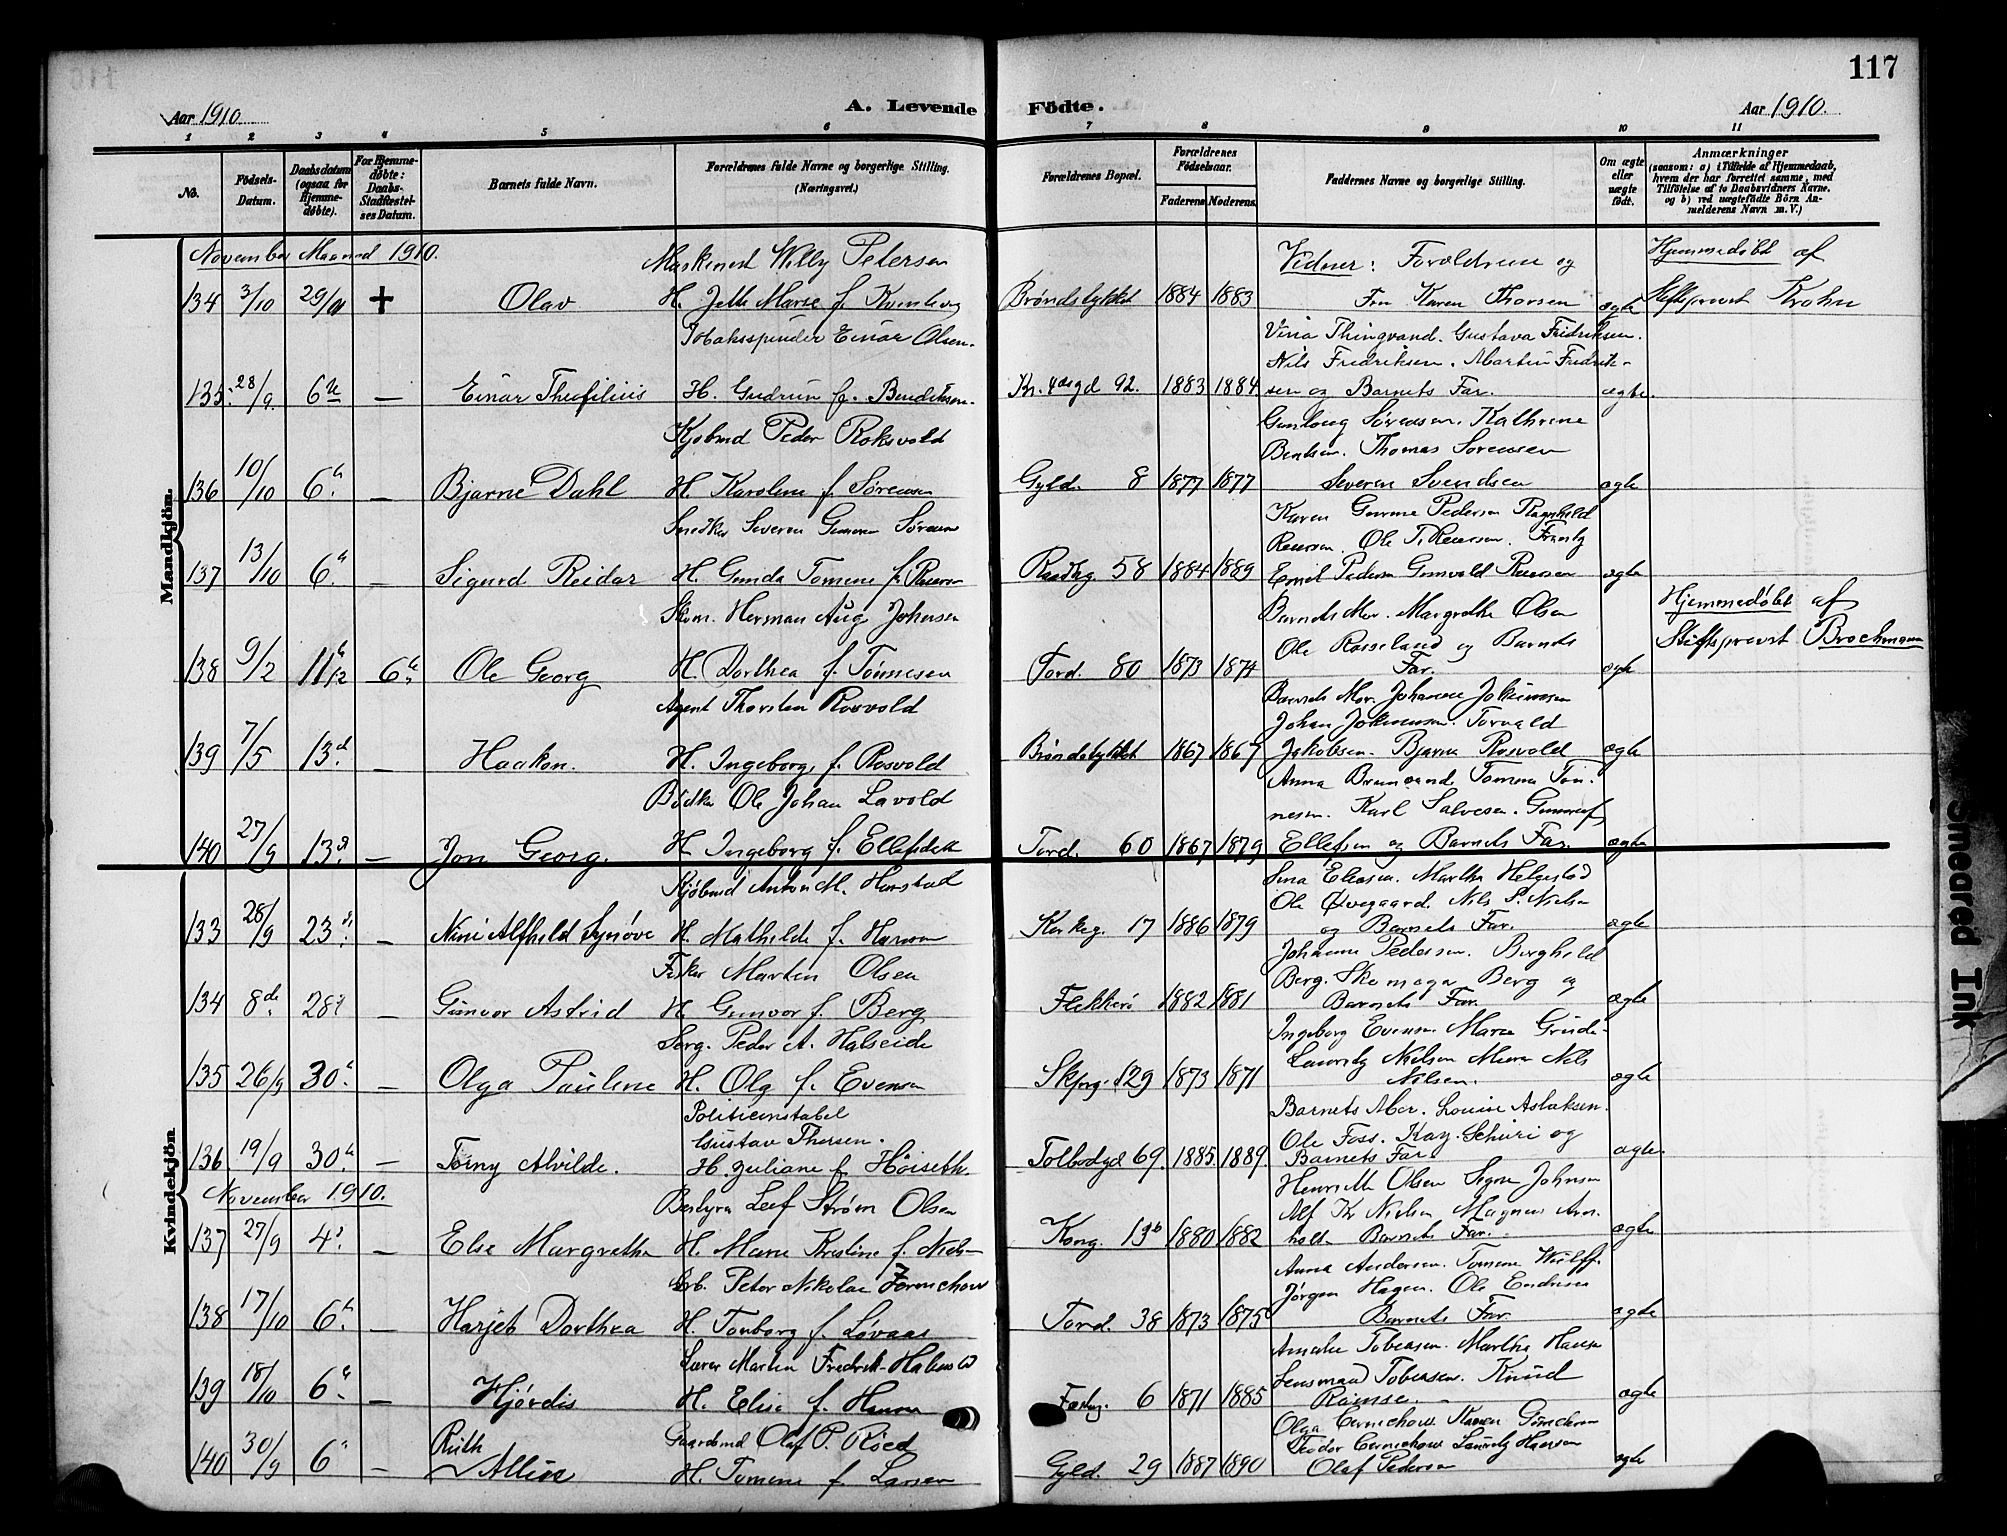 117
Aar 1910.
A. Levende Födte.
Aar 1910.
1 2 3 4 5 6 7 8 9 10 11
No. Födsels-Datum. Daabsdatum (ogsaa for Hjemmedöbte). For Hjemmedöbte: Daabs-Stadfæstelses Datum. Barnets fulde Navn. Forældrenes fulde Navne og borgerlige Stilling. (Næringsvei.) Forældrenes Bopæl. Forældrenes Födselsaar. Faderens Moderens. Faddernes Navne og borgerlige Stilling. Om ægte eller uægte födt. Anmærkninger (saasom: a) i Tilfælde af Hjemmedaab, hvem der har forrettet samme, med Tilföielse af to Daabsvidners Navne, og b) ved uægtefödte Börn Anmelderens Navn m. V.)
Mandkjön.
November Maaned 1910. Maskinist Willy Petersen Vidner: Forældrene og Hjemmedøbt af
134 3/10 29/9 + Olav H. Marie f. Brøndstykket 1884 1883 Fru Karen Thorsen ægte Stiftsprovst Krohn
Tobaksspinder Einar Olsen. Thingvand. Gustava Fridriksen.
Nils Fredriksen. Martin Fredrik-
135. 28/9. 6te — Einar Theofilius H. Gudrun f. Bendiksen. Kr. 4des gd 92. 1883 1884. sen og Barnets Far. ægte.
Kjøbmd Peder Roksvold Gunloug Sørensen. Kathrine
Bentsen. Thomas Sørensen
136 10/10 6te — Bjarne Dahl H. Karoline f. Sørensen Gyld. 8 1877 1877 Severin Svendsen ægte
Snedker Severin Sørensen Karen Pedersen Ragnhild
Ole T.
137 13/10 6te — Sigurd Reidar H. Gunda Tomine f. Raadhg. 58 1884 1889 Emil Pedersen Gunvald ægte
Skom. Herman Aug. Johnsen Barnets Mor. Margrethe Olsen Hjemmedøbt af
Ole Rosseland og Barnets Stiftsprovst Brochmann
138 9/2 11/12 6te Ole Georg H. Dorthea f. Tønnesen Tord. 80 1873 1874 Far. ægte
Agent Thorsten Rosvold Barnets Mor Johanne Jokumsen
Johan Jokumsen. Torvald
139 7/5 13d — Haakon. H. Ingeborg f. Rosvold Brøndstykket 1867 1867 Jakobsen. Bjarne Rosvold ægte
Bødker Ole Johan Lavold Anna Tomine Tøn-
nesen. Karl Salvesen.
140 27/9 13d — Jon Georg. H. Ingeborg f. Tord. 60 1867 1879 Ellefsen og Barnets Far. ægte
Kvindekjön
Kjøbmd Anton M. Harstad Sina Eliasen. Martha Helgestad
Ole Øvegaard. Nils S. Nielsen
133 28/9 23d — Nini Alfhild Synøve H. Mathilde f. Hansen Kirkeg. 17 1886 1879 og Barnets Far. ægte
Fisker Martin Olsen Johanne Pedersen. Borghild
Berg. Skomager Berg og
134 8de 28d — Gunvor Astrid H. Gunvor f. Berg Flekkerö 1882 1881 Barnets Far. ægte
Serg. Peder A. Halseide Ingeborg Evensen. Marie
Lauritz Nielsen Nils
135 26/9 30te — Olga Pauline H. Olg f. Evensen 129 1873 1871 Nilsen. ægte
Politiconstabel Barnets Mor. Louise Aslaksen.
Gustav Thorsen. Ole Foss. Kay. Schuri og
136. 19/9 30te — Torny Alvilde. H. Juliane f. Höiseth Tolbodgd 69. 1885. 1889. Barnets Far. ægte.
November 1910. Bestyrer Leif Strøm Olsen Henriette Olsen Signe Johnsen
Alf Kr Nielsen Magnus Arn-
137 27/9 4d — Else Margrethe H. Marie Kristine f. Nielsen Kong. 13b 1880 1882 holdt Barnets Far. ægte
Arb. Peter Nikolai Anna Andersen. Tomine Wulff.
Jørgen Hagen. Ole Endresen
138 17/10 6te — Harjet Dorthea H. Tonborg f. Løvaas Tord. 38 1873 1875 Barnets Far ægte
Lærer Martin Fredrik Amalie Tobiasen. Martha Hansen
Lensmand Tobiasen. Knud
139 18/10 6te — Hjørdis H. Elise f. Hansen Fæstng. 6 1871 1885 ægte
Gaardsmd Olaf P. Röed Olga Karen Gundersen
Ruth Teodor Lauritz Hansen
140 30/9 6te — Alice H. Tomine f. Larsen Gyld. 29 1887 1890 Olaf Pedersen ægte
Smeared Ink